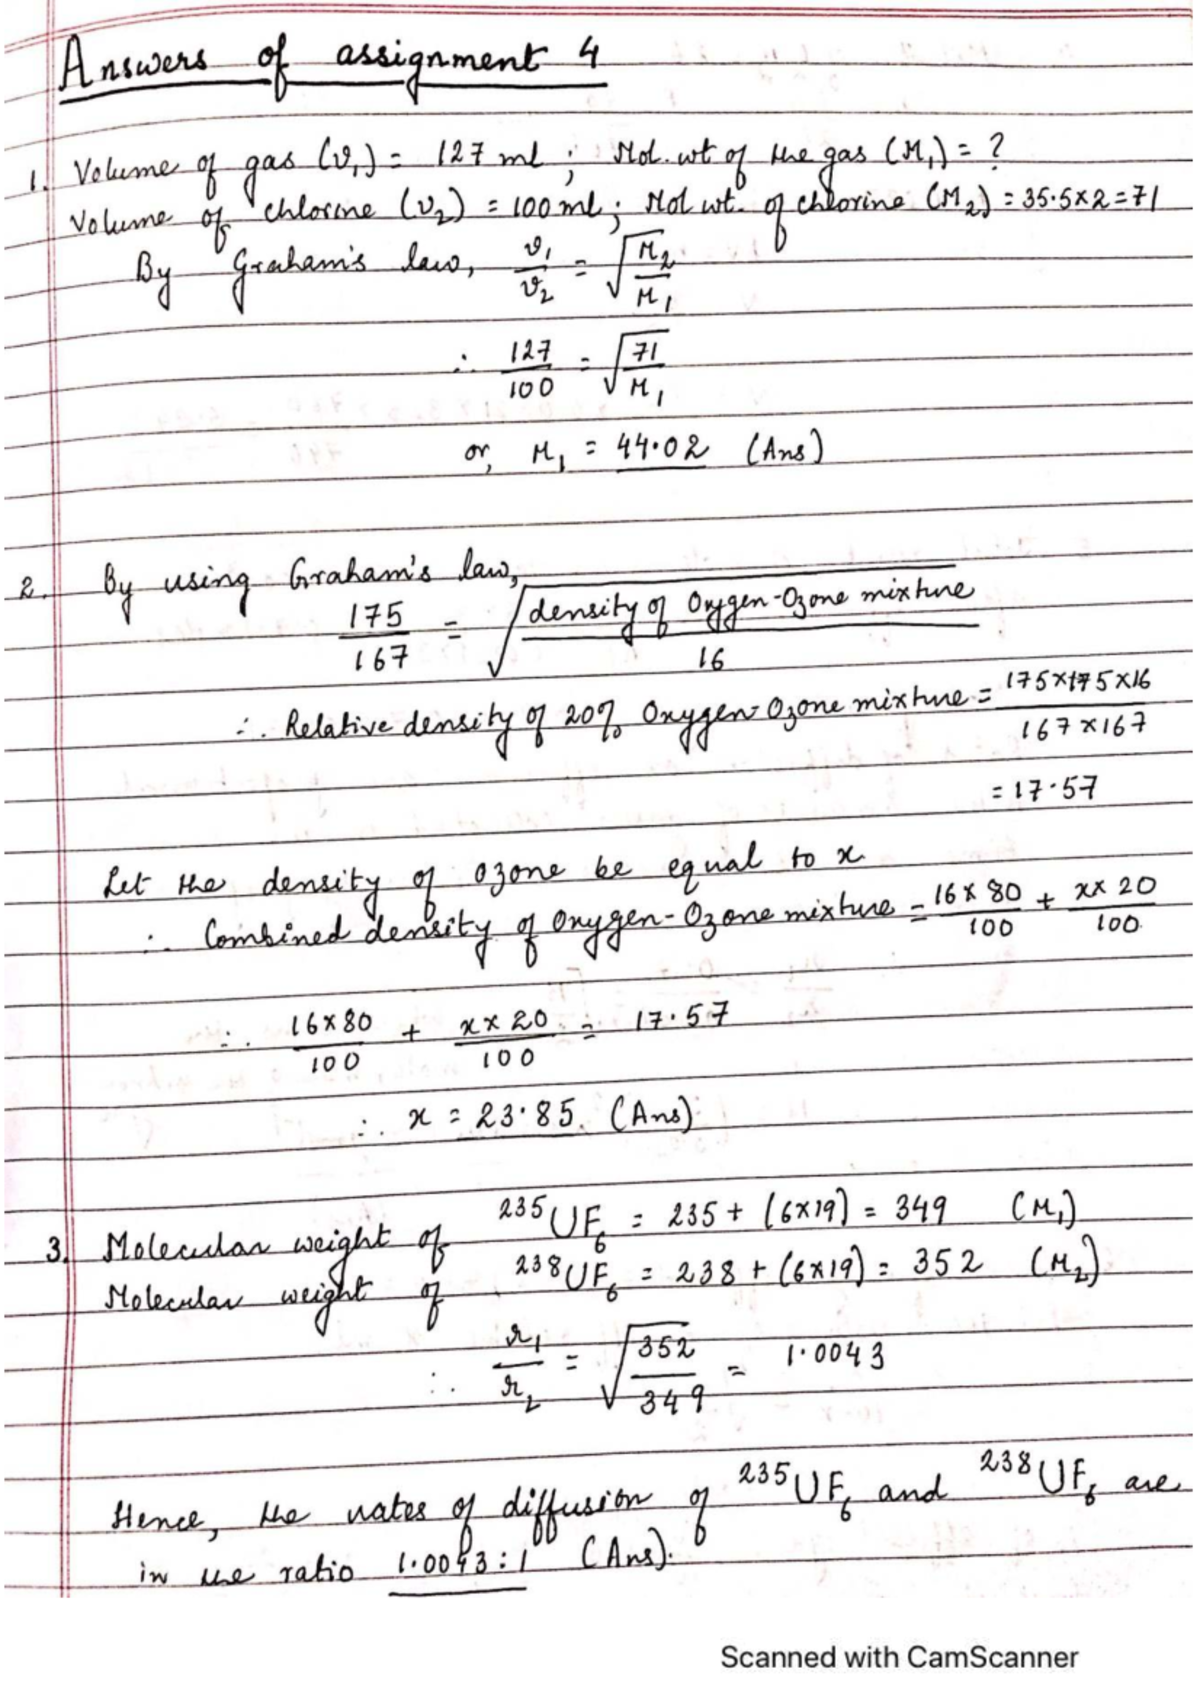 Answers of assignment 4
1. Volume of gas (v₁) = 127 ml ; Mol. wt of the gas (M₁) = ?
Volume of chlorine (v₂) = 100 ml ; Mol wt. of chlorine (M₂) = 35.5×2 = 71
By Graham's law, v₁/v₂ = √(M₂/M₁)
∴ 127/100 = √(71/M₁)
or, M₁ = 44.02 (Ans)
2. By using Graham's law,
175/167 = √(density of Oxygen-Ozone mixture/16)
∴ Relative density of 20% Oxygen-Ozone mixture = 175×175×16/167×167
= 17.57
Let the density of ozone be equal to x
∴ Combined density of Oxygen-Ozone mixture = 16×80/100 + x×20/100
∴ 16×80/100 + x×20/100 = 17.57
∴ x = 23.85. (Ans)
3. Molecular weight of ²³⁵UF₆ = 235 + (6×19) = 349 (M₁)
Molecular weight of ²³⁸UF₆ = 238 + (6×19) = 352 (M₂)
∴ r₁/r₂ = √(352/349) = 1.0043
Hence, the rates of diffusion of ²³⁵UF₆ and ²³⁸UF₆ are
in the ratio 1.0043 : 1 (Ans).
Scanned with CamScanner